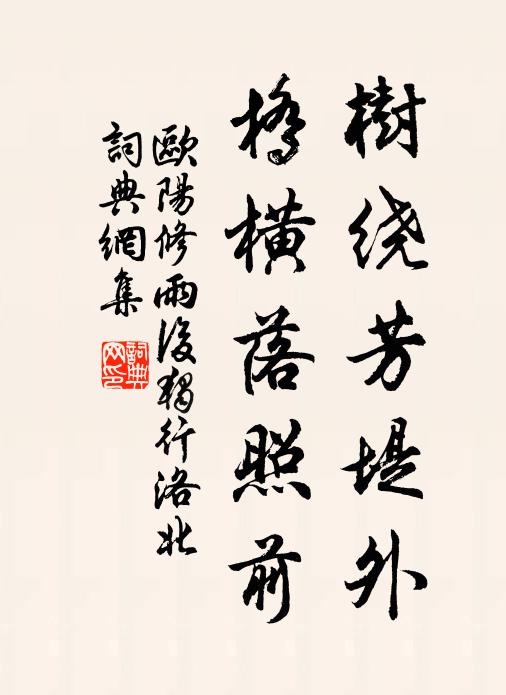 樹绕芳堤外
橋横落照前
歐陽修雨後獨行洛北
詞典網集
詞典网印